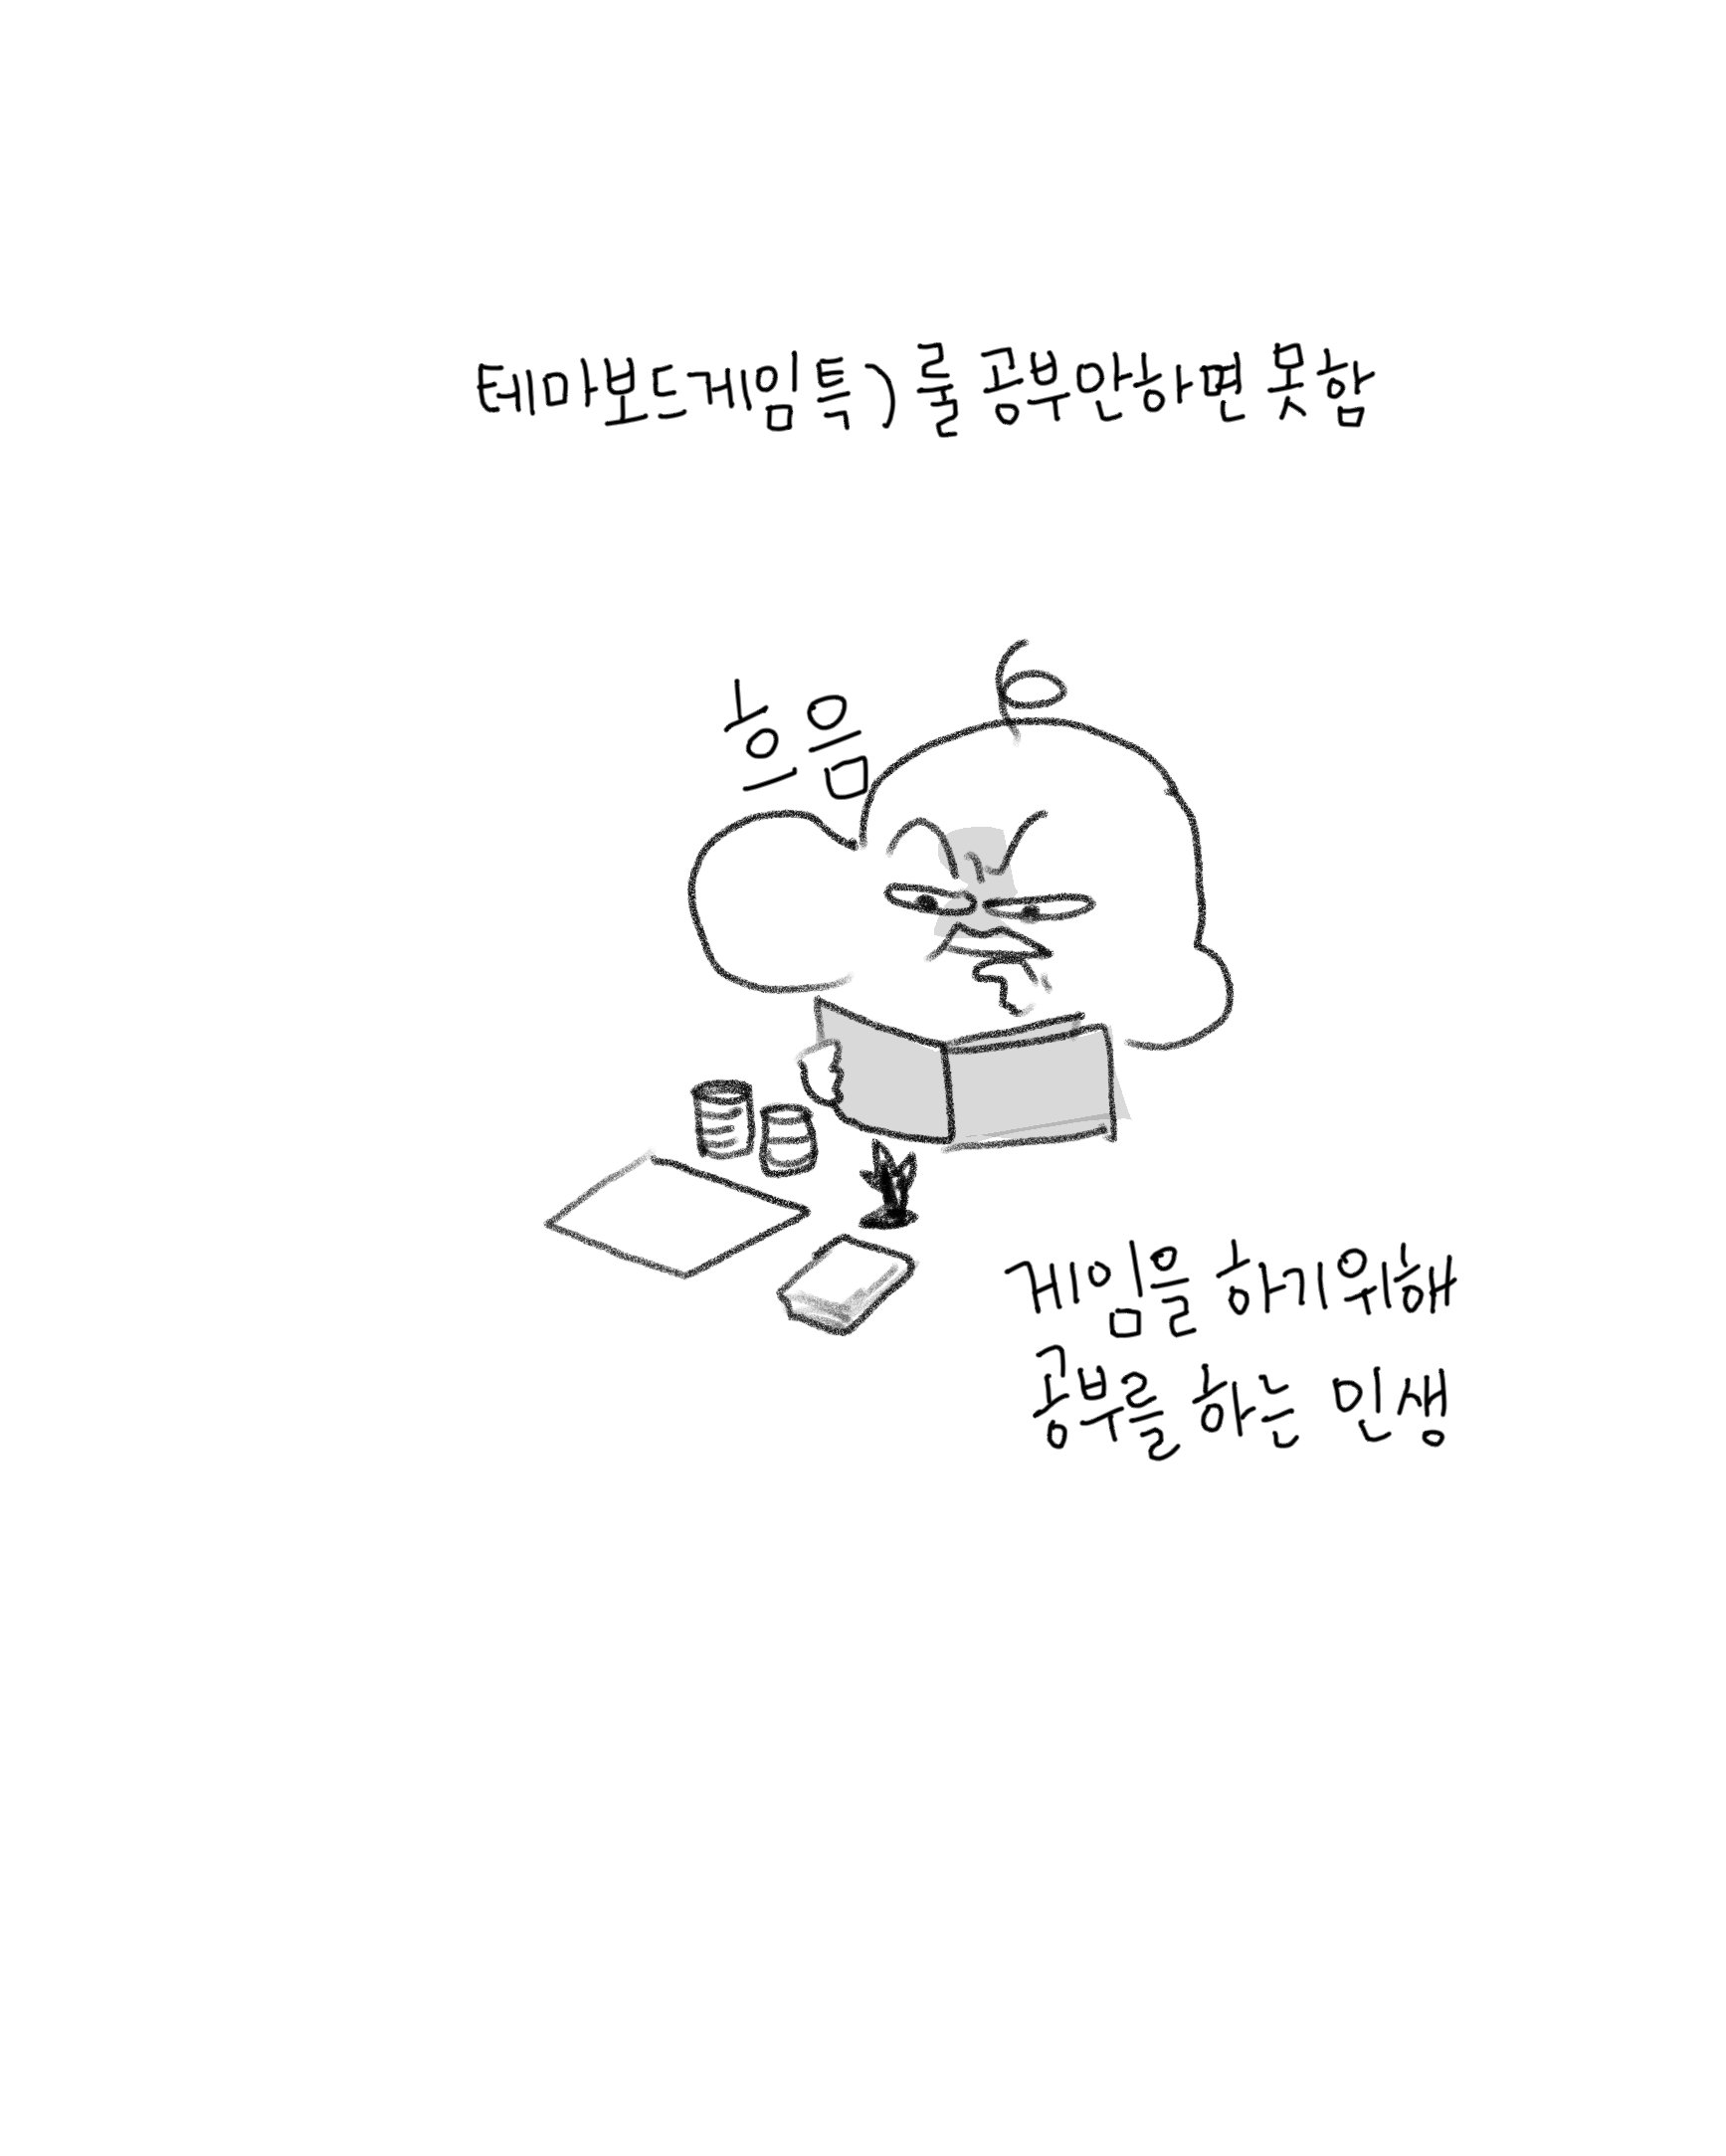 테마보드게임특) 룰 공부안하면 못함
흐음
게임을 하기위해
공부를 하는 인생